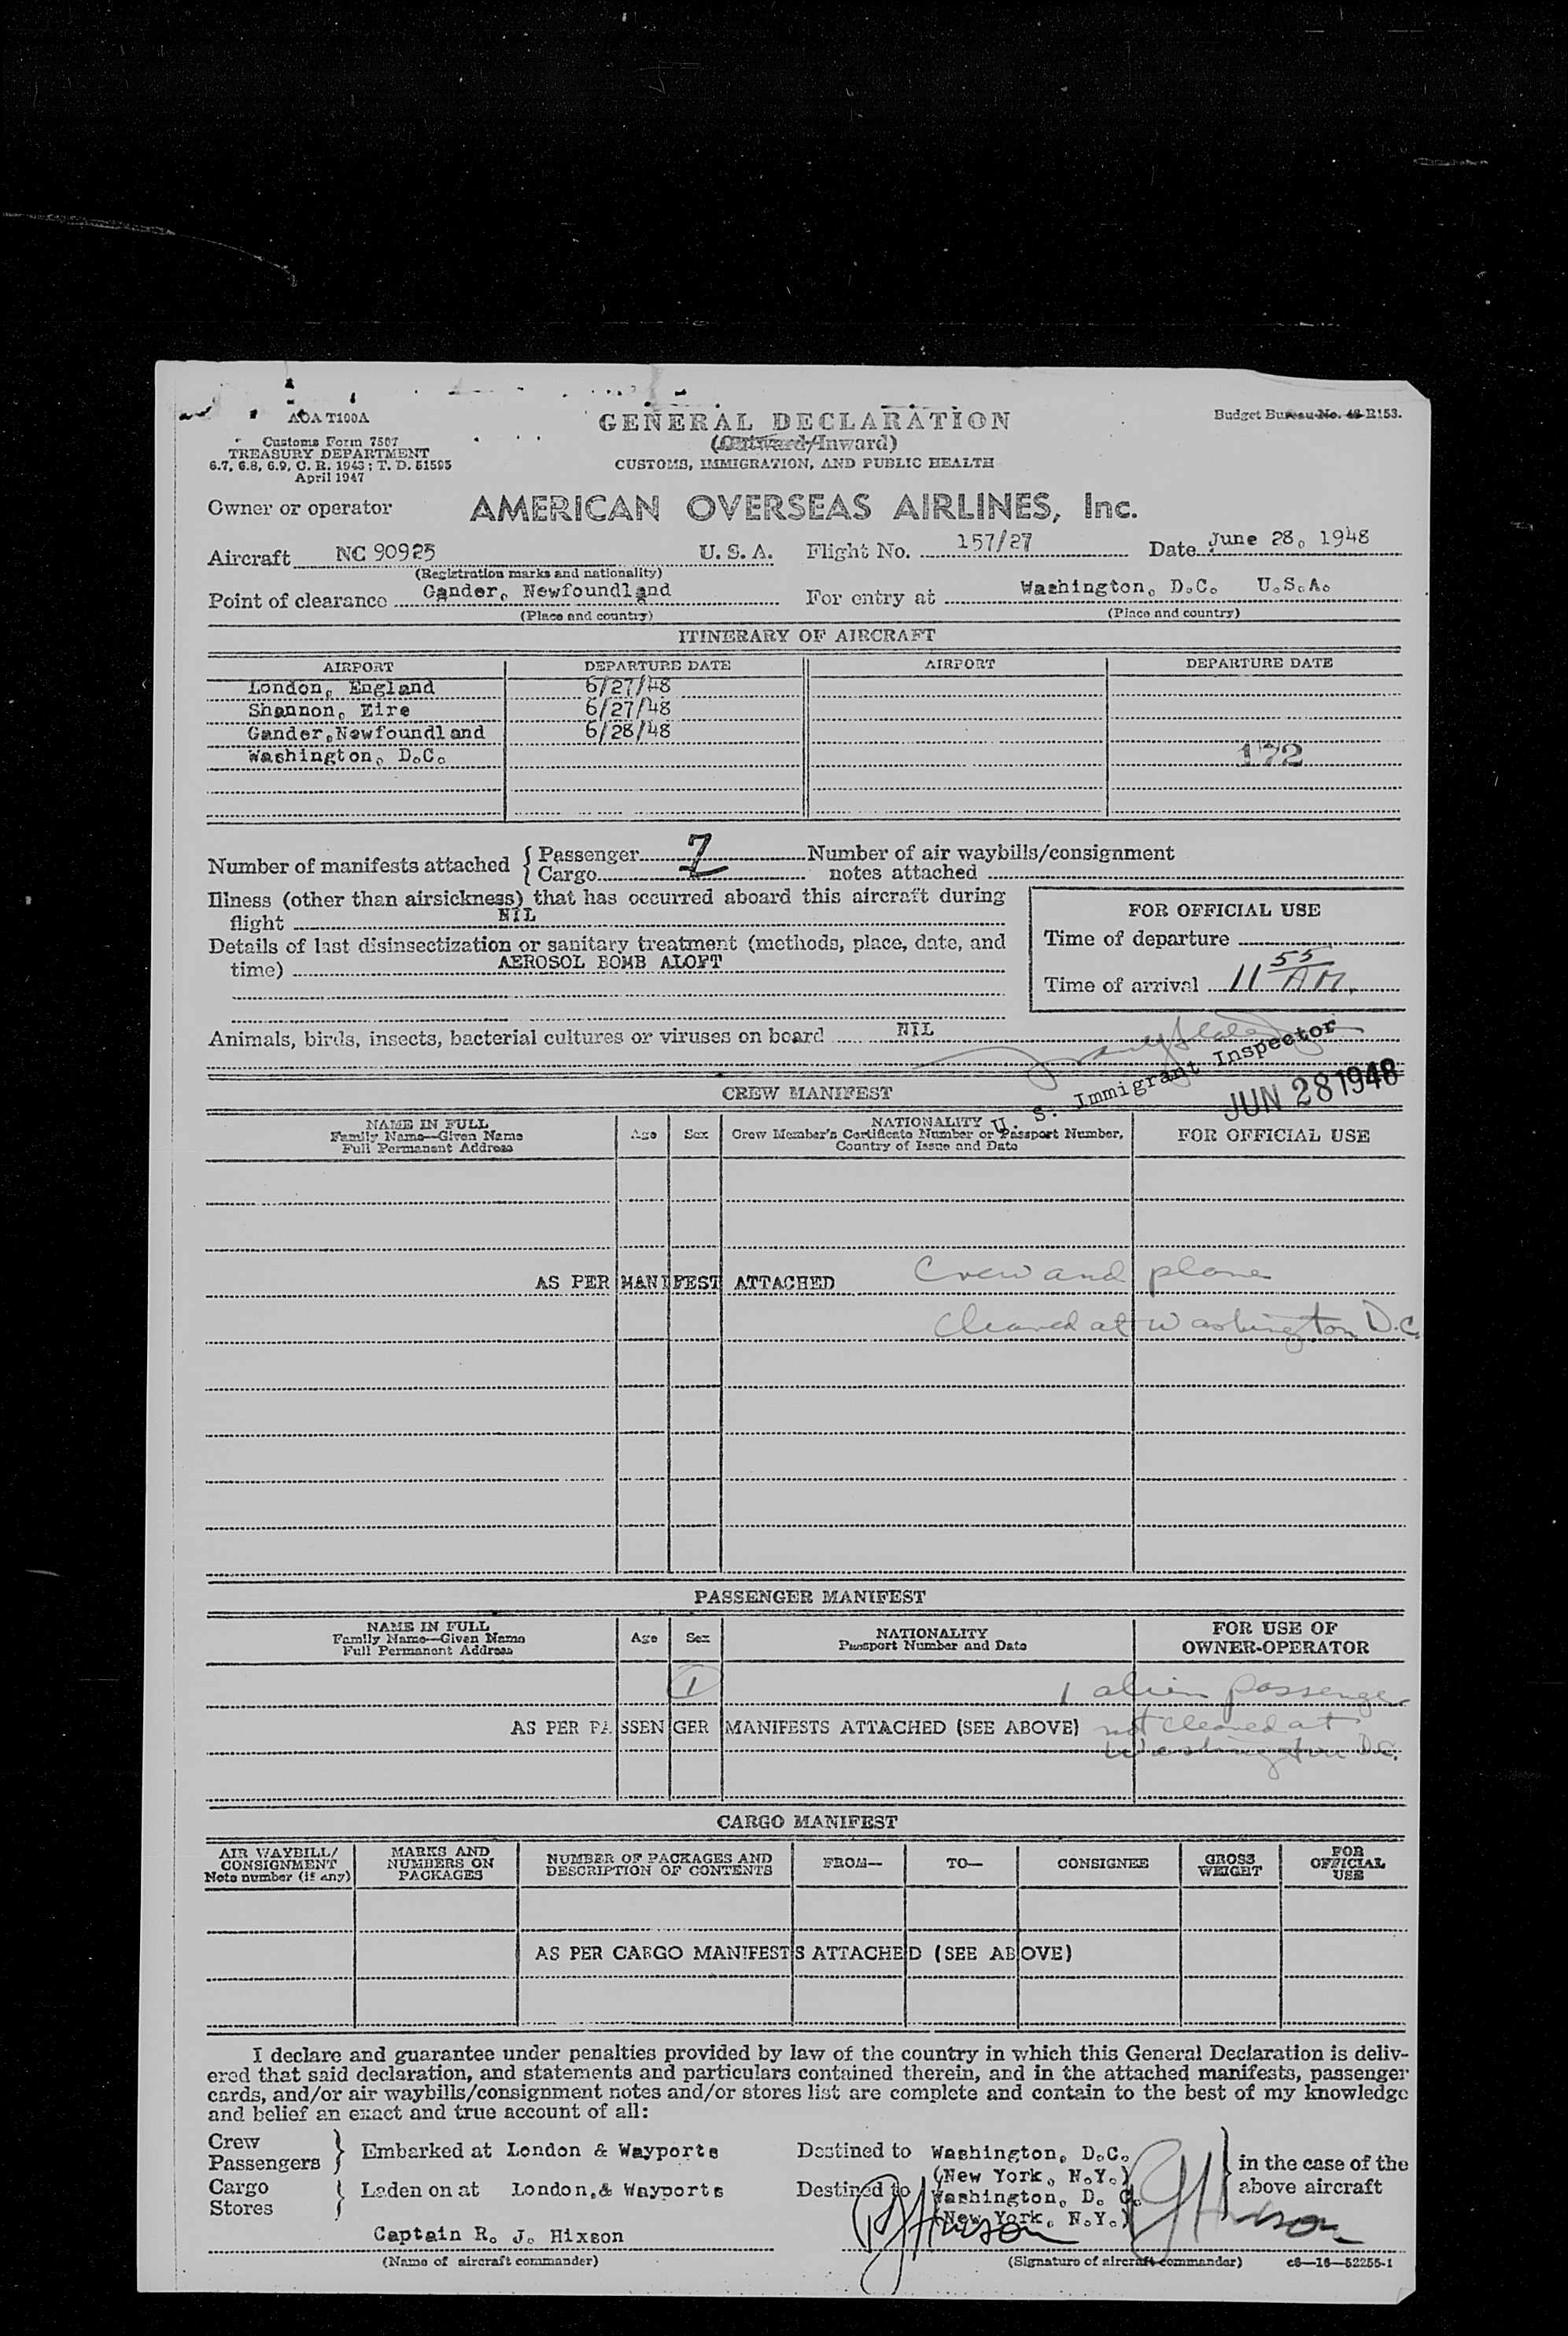 AOA T100A
Customs Form 7507
TREASURY DEPARTMENT
6.7, 6.8, 6.9, C. R. 1943; T. D. 51595
April 1947
GENERAL DECLARATION
(Outward/Inward)
CUSTOMS, IMMIGRATION, AND PUBLIC HEALTH
Budget Bureau No. 48-R153.
Owner or operator AMERICAN OVERSEAS AIRLINES, Inc.
Aircraft NC 90925 U. S. A. Flight No. 157/27 Date June 28, 1948
(Registration marks and nationality)
Point of clearance Gander, Newfoundland For entry at Washington, D.C. U.S.A.
(Place and country) (Place and country)
ITINERARY OF AIRCRAFT
AIRPORT DEPARTURE DATE AIRPORT DEPARTURE DATE
London, England 6/27/48
Shannon, Eire 6/27/48
Gander,Newfoundland 6/28/48
Washington, D.C. 172
Number of manifests attached { Passenger 7 Number of air waybills/consignment
Cargo notes attached
Illness (other than airsickness) that has occurred aboard this aircraft during
flight NIL
Details of last disinsectization or sanitary treatment (methods, place, date, and
time) AEROSOL BOMB ALOFT
FOR OFFICIAL USE
Time of departure
Time of arrival 11 55 AM.
Animals, birds, insects, bacterial cultures or viruses on board NIL
U. S. Immigrant Inspector
JUN 28 1948
CREW MANIFEST
NAME IN FULL
Family Name—Given Name
Full Permanent Address
Age Sex
NATIONALITY
Crew Member's Certificate Number or Passport Number,
Country of Issue and Date
FOR OFFICIAL USE
AS PER MANIFEST ATTACHED Crew and plane
cleared at Washington D.C.
PASSENGER MANIFEST
NAME IN FULL
Family Name—Given Name
Full Permanent Address
Age Sex
NATIONALITY
Passport Number and Date
FOR USE OF
OWNER-OPERATOR
1 1 alien passenger
AS PER PASSENGER MANIFESTS ATTACHED (SEE ABOVE) not cleared at
Washington D.C.
CARGO MANIFEST
AIR WAYBILL/
CONSIGNMENT
Note number (if any)
MARKS AND
NUMBERS ON
PACKAGES
NUMBER OF PACKAGES AND
DESCRIPTION OF CONTENTS
FROM— TO— CONSIGNEE
GROSS
WEIGHT
FOR
OFFICIAL
USE
AS PER CARGO MANIFESTS ATTACHED (SEE ABOVE)
I declare and guarantee under penalties provided by law of the country in which this General Declaration is deliv-
ered that said declaration, and statements and particulars contained therein, and in the attached manifests, passenger
cards, and/or air waybills/consignment notes and/or stores list are complete and contain to the best of my knowledge
and belief an exact and true account of all:
Crew
Passengers } Embarked at London & Wayports Destined to Washington, D.C.
(New York, N.Y.)
Cargo
Stores } Laden on at London,& Wayports Destined to Washington, D. C.
(New York, N.Y.)
in the case of the
above aircraft
Captain R. J. Hixson RJHixson
(Name of aircraft commander) (Signature of aircraft commander) c6—16—52255-1